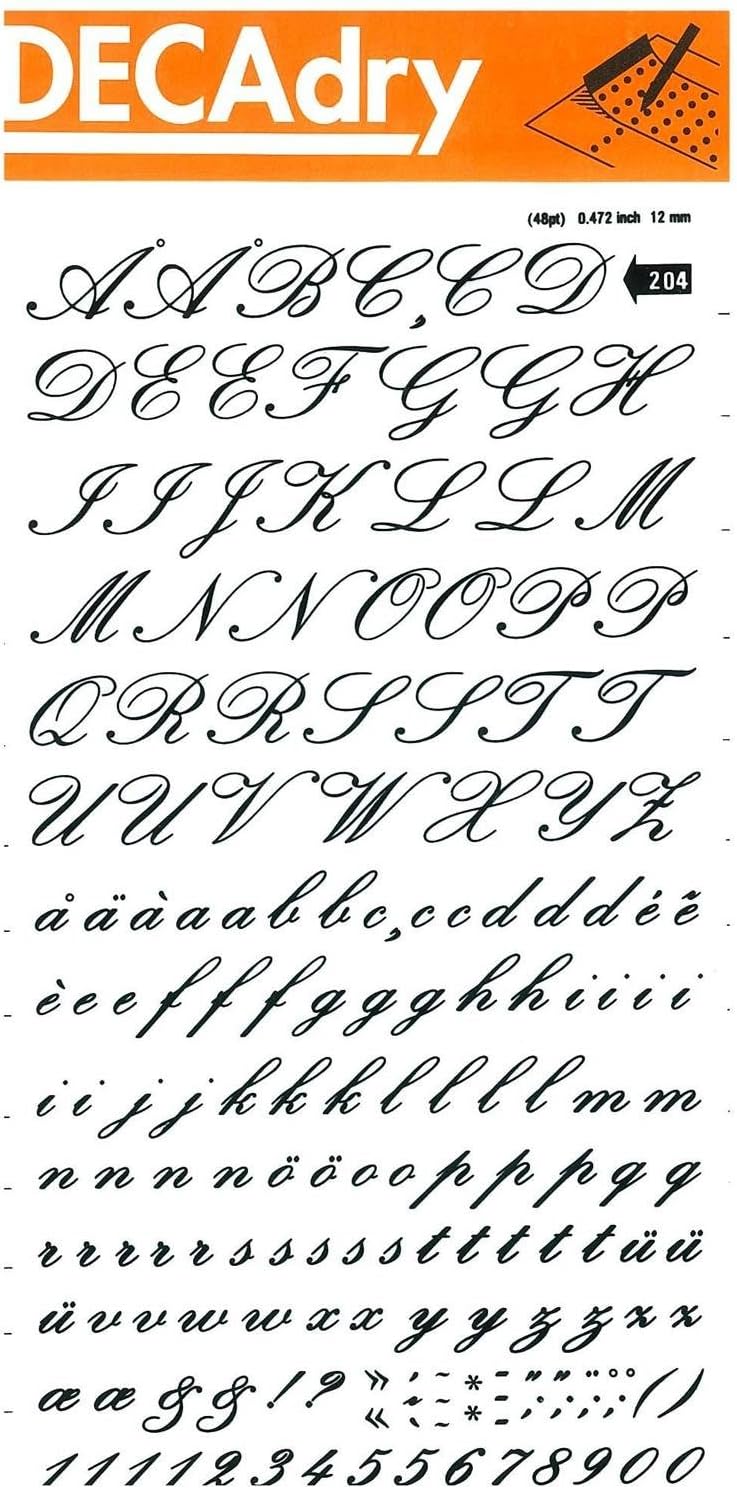 DECAdry
(48pt) 0.472 inch 12 mm
Å Å B C ¸ C D 204
D E E F G G H
I I J K L L M
M N N O O P P
Q R R S S T T
U U V W X Y Z
å ä à a a b b c ¸ c c d d d é ẽ
è e e f f f g g g h h i i i i
i i j j k k k l l l l m m
n n n n ö ö o o p p p q q
r r r r r s s s s s t t t t t ü ü
ü v v w w x x y y ʒ ʒ z z
æ æ & & ! ? » « * * ( )
1 1 1 1 2 3 4 5 5 6 7 8 9 0 0